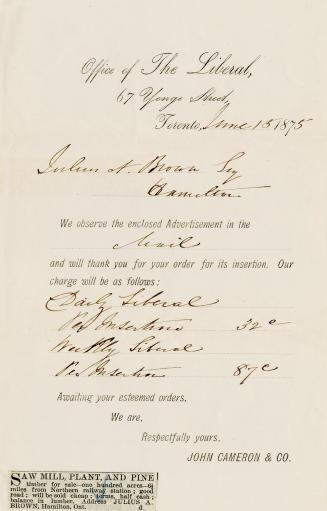 Office of The Liberal,
67 Yonge Street,
Toronto, June 15 1875
Julius A. Brown Esq
Hamilton
We observe the enclosed Advertisement in the
Mail
and will thank you for your order for its insertion. Our
charge will be as follows:
Daily Liberal
Per Insertion 32c
Weekly Liberal
Per Insertion 87c
Awaiting your esteemed orders,
We are,
Respectfully yours,
JOHN CAMERON & CO.
SAW MILL, PLANT, AND PINE
timber for sale—one hundred acres—6½
miles from Northern railway station; good
road; will be sold cheap; terms, half cash;
balance in lumber. Address JULIUS A.
BROWN, Hamilton, Ont. d